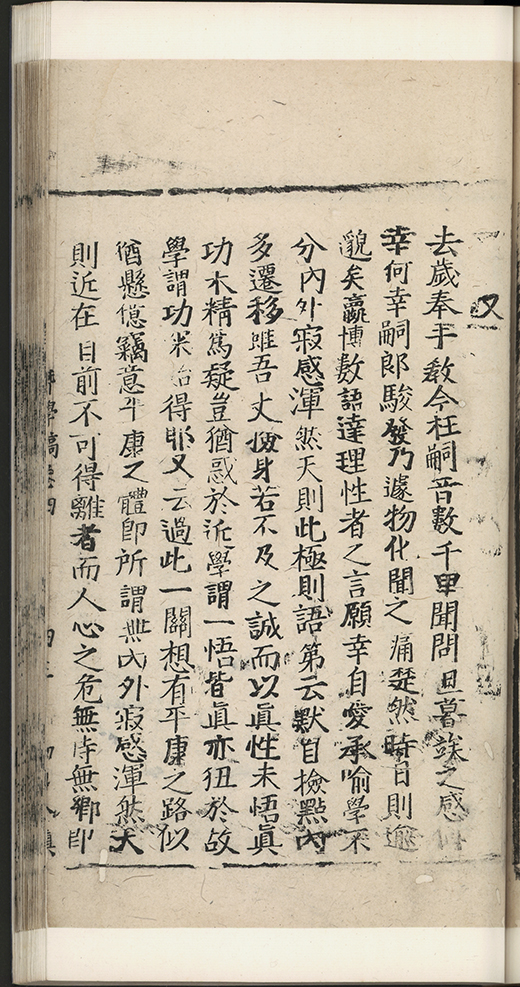 又
去歲奉手教今枉嗣音數千里聞問旦暮詇之感
幸何幸嗣郎駿發乃遽物化聞之痛楚然時日則邈
邈矣嬴博數語達理性者之言願幸自愛承喻學不
分內外寂感渾然天則此極則語第云默自撿點內
多遷移雖吾丈撿身若不及之誠而以眞性未悟眞
功未精爲疑豈猶惑於近學謂一悟皆眞亦狃於故
學謂功未治得耶又云過此一關想有平康之路似
猶懸億竊意平康之體卽所謂無內外寂感渾然天
則近在目前不可得離者而人心之危無時無鄉卽